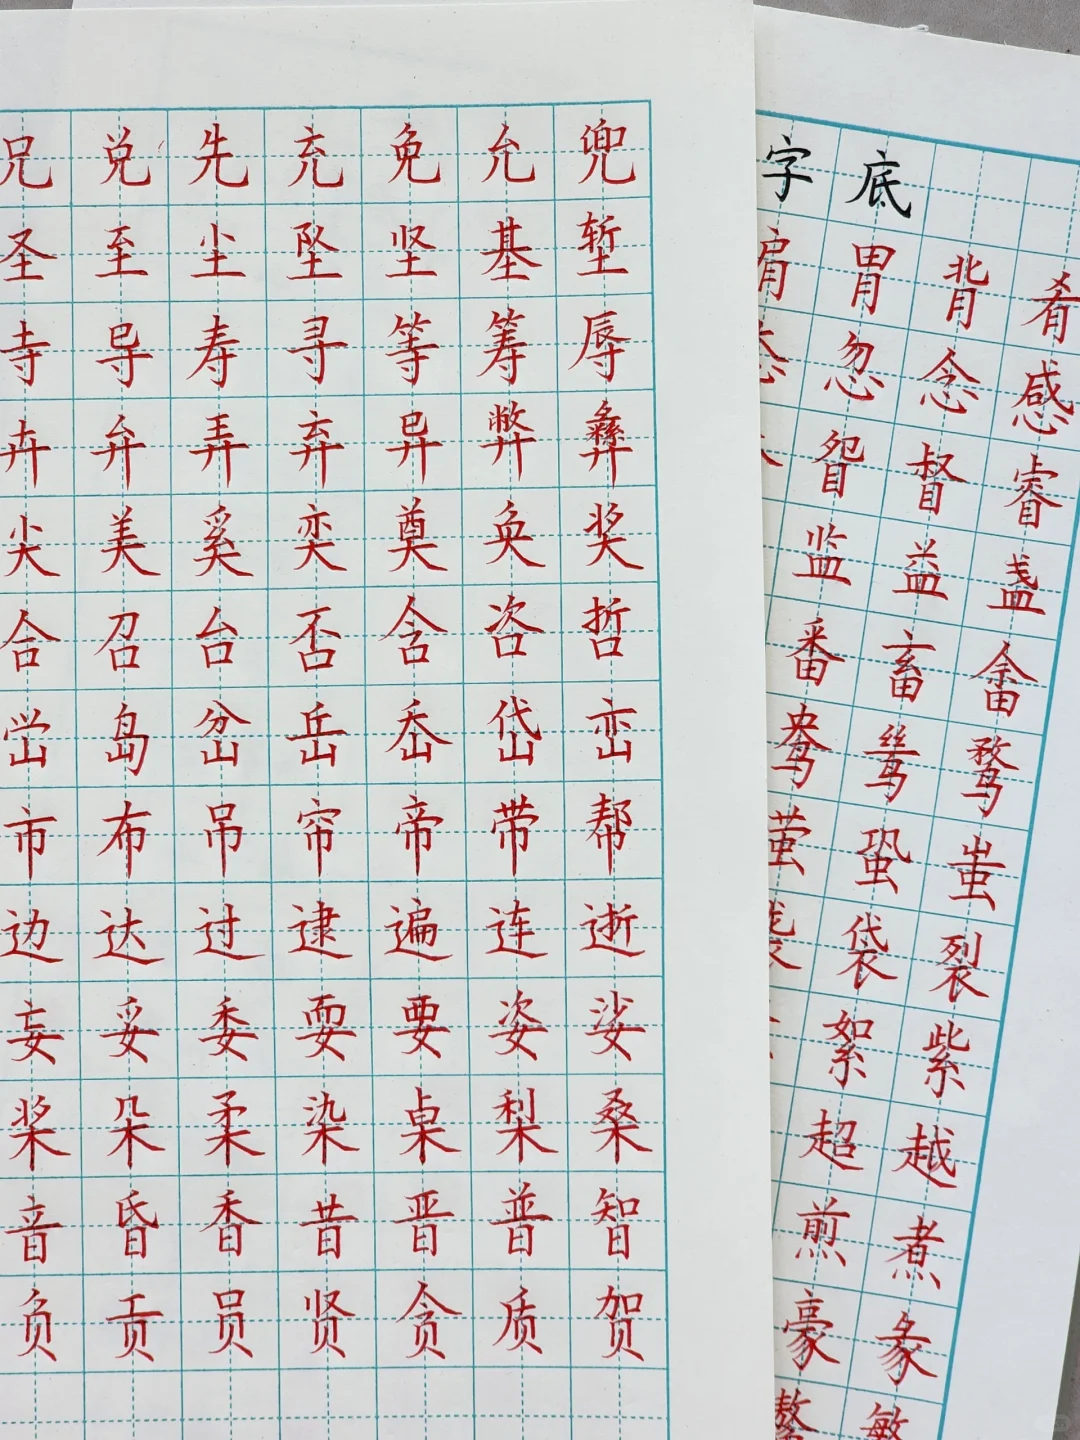 兄 兑 先 充 免 允 兜
圣 至 尘 坠 坚 基 堑
寺 导 寿 寻 等 筹 辱
卉 弁 弄 弃 异 弊 彝
尖 美 奚 奕 奠 奂 奖
合 召 台 否 含 咨 哲
峃 岛 岔 岳 岙 岱 峦
市 布 吊 帘 帝 带 帮
边 达 过 逮 遍 连 逝
妄 妥 委 耍 要 姿 娑
桨 朵 柔 染 桌 梨 桑
音 昏 香 昔 晋 普 智
负 贡 员 贤 贪 质 贺
字 底
肩 胃 背 肴
忽 念 感
眢 督 睿
监 益 盏
番 畜 畲
鸯 鸶 鹜
萤 蛩 蚩
袋 裂
絮 紫
超 越
煎 煮
豪 彖